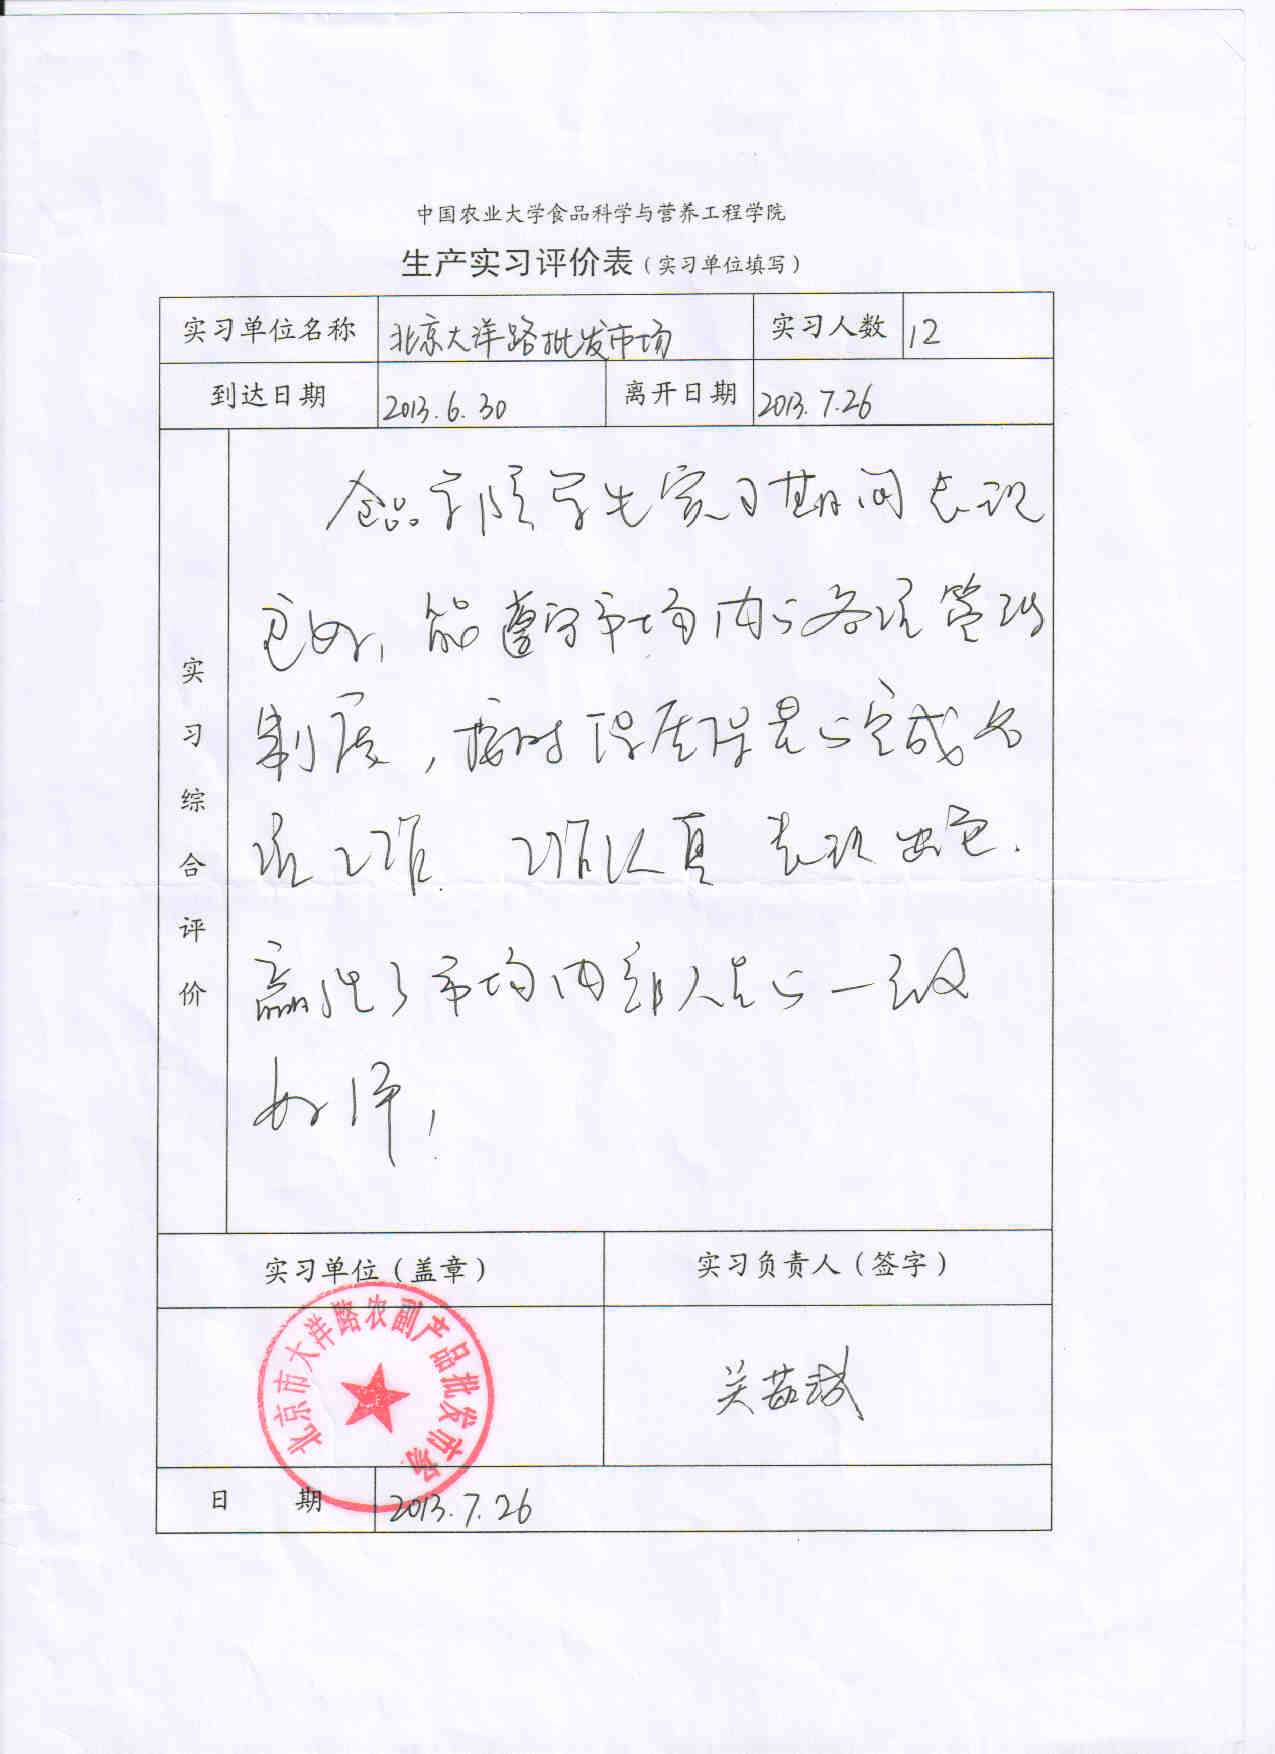 中国农业大学食品科学与营养工程学院
生产实习评价表（实习单位填写）
实习单位名称 北京大洋路批发市场 实习人数 12
到达日期 2013.6.30 离开日期 2013.7.26
实习综合评价
食品学院学生实习期间表现
良好，能遵守市场内的各项管理
制度，按时保质保量的完成各
项工作. 工作认真 表现出色.
赢得了市场内部人员的一致
好评，
实习单位（盖章） 实习负责人（签字）
北京市大洋路农副产品批发市场
关
日期 2013.7.26